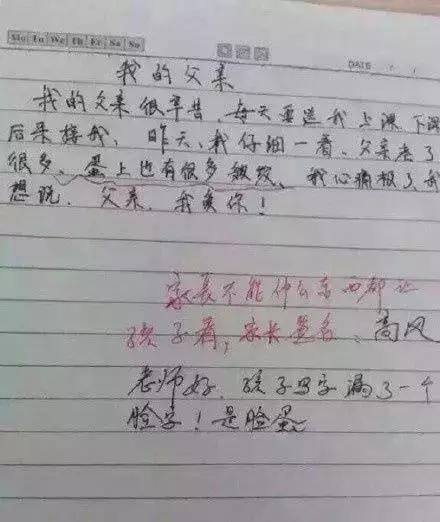 Mo Tu We Th Fr Sa Su
DATE
我的父亲
我的父亲很辛苦,每天要送我上课,下课
后来接我,昨天,我仔细一看,父亲老了
很多,蛋上也有很多皱纹,我心痛极了,我
想说,父亲,我爱你!
家长不能什么东西都让
孩子看,家长签名、高风
老师好,孩子写字漏了一个
脸字!是脸蛋